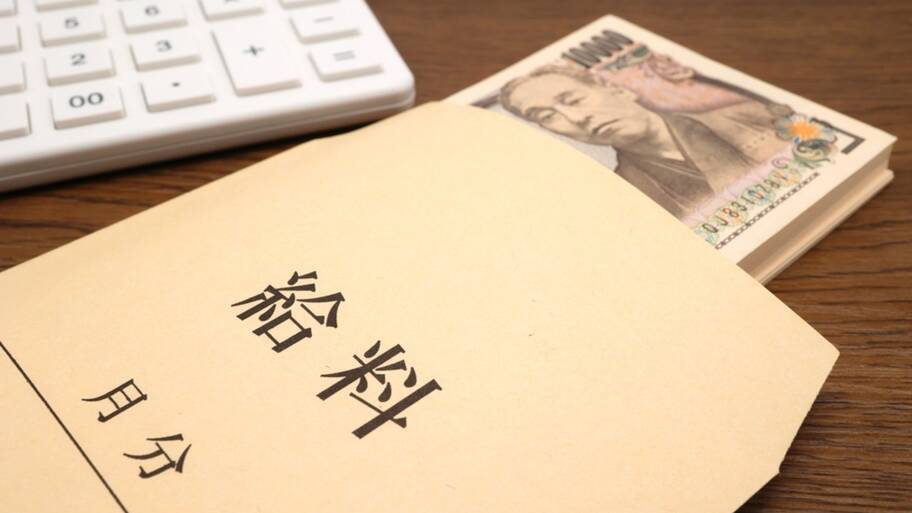 5
6
2
3
+
00
.
-
=
10000
給料
月分